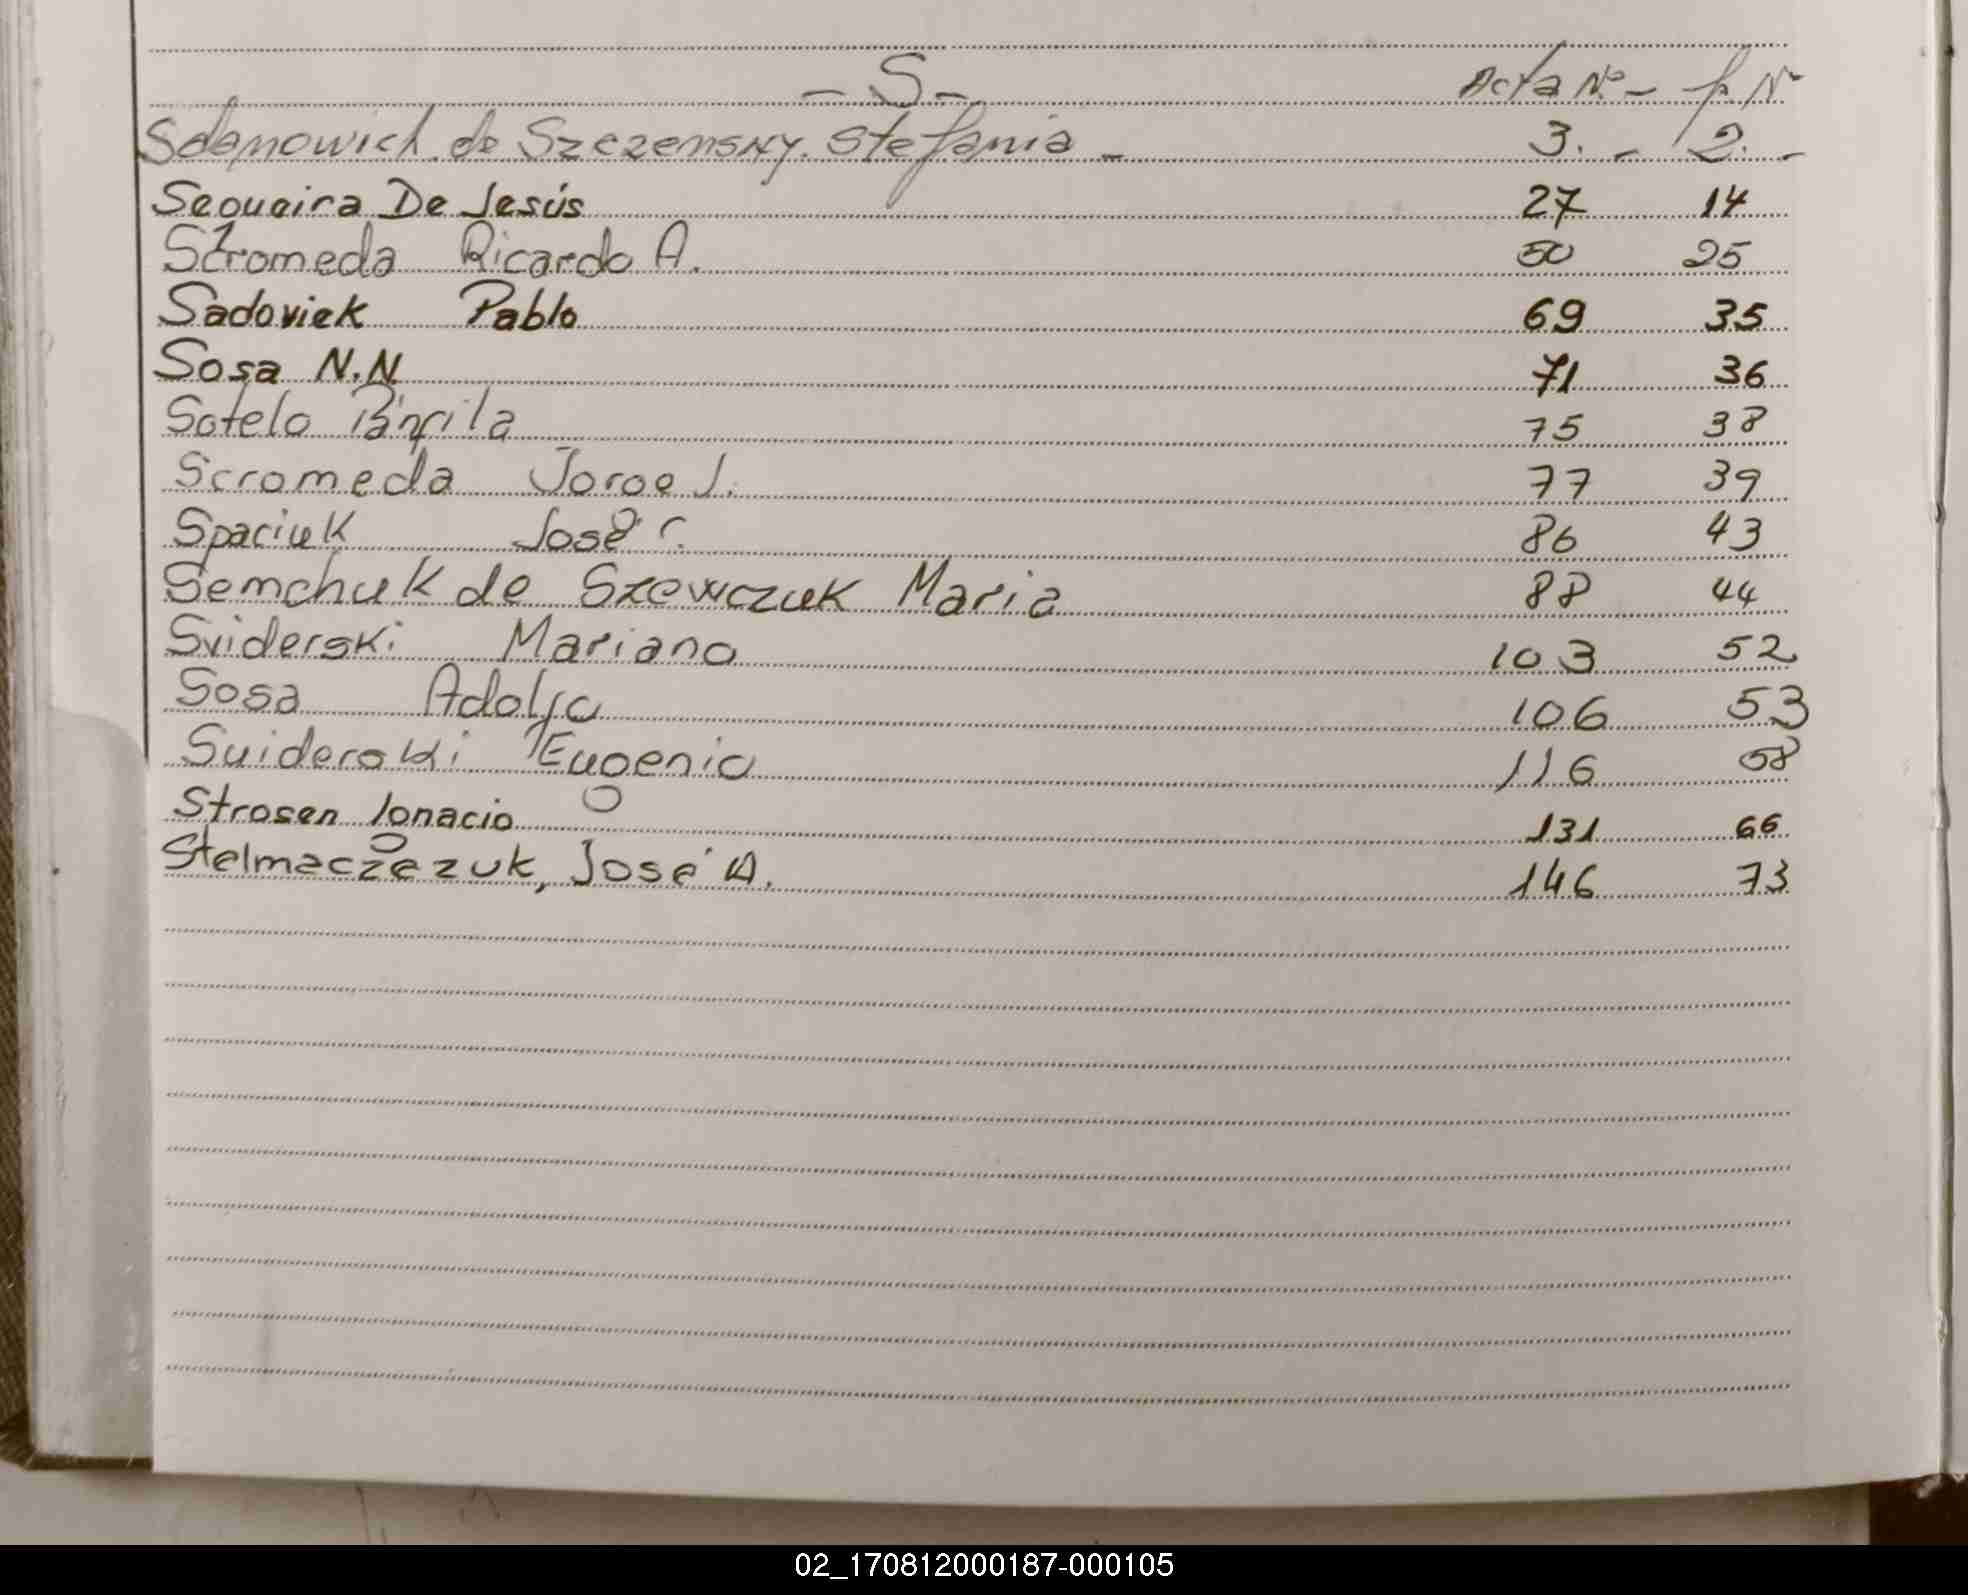 - S - Acta Nº - f. Nº
Sdanowich de Szczensky Stefania - 3. - 2. -
Sequeira De Jesús 27 14
Stromeda Ricardo A. 50 25
Sadoviek Pablo 69 35
Sosa N.N. 71 36
Sotelo Pánfila 75 38
Scromeda Jorge J. 77 39
Spaciuk José C. 86 43
Semchuk de Szewczuk Maria 88 44
Sviderski Mariano 103 52
Sosa Adolfo 106 53
Suiderski Eugenio 116 58
Strosen Ignacio 131 66
Stelmaczezuk, José A. 146 73
02_170812000187-000105